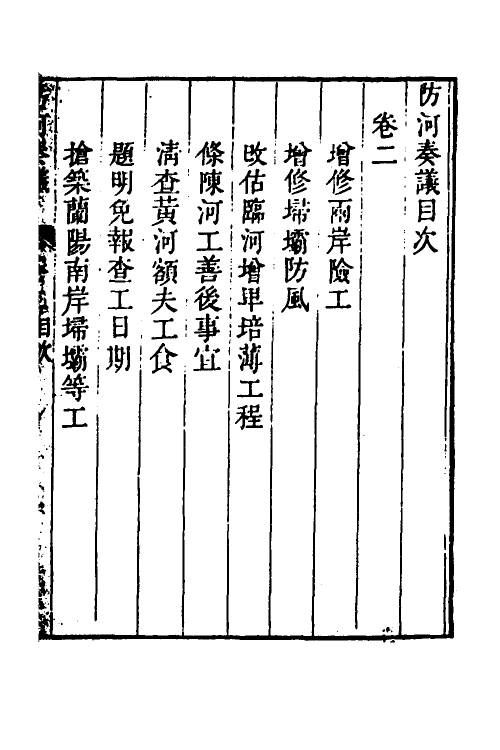 防河奏議目次
卷二
增修兩岸險工
增修埽壩防風
改估臨河增卑培薄工程
條陳河工善後事宜
清查黃河額夫工食
題明免報查工日期
搶築蘭陽南岸埽壩等工